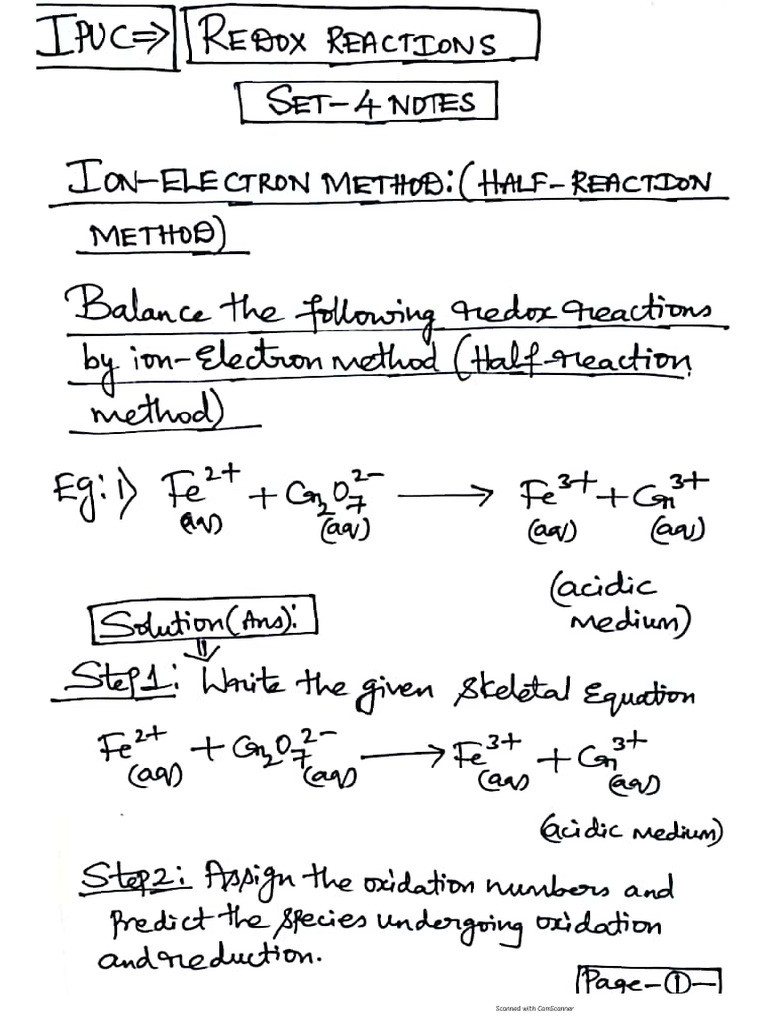 I PUC ⇒ REDOX REACTIONS
SET-4 NOTES
ION-ELECTRON METHOD: (HALF-REACTION
METHOD)
Balance the following redox reactions
by ion-Electron method (Half-reaction
method)
Eg: i) Fe²⁺(aq) + Cr₂O₇²⁻(aq) ⟶ Fe³⁺(aq) + Cr³⁺(aq)
(acidic
medium)
Solution(Ans):
⇓
Step1: Write the given Skeletal Equation
Fe²⁺(aq) + Cr₂O₇²⁻(aq) ⟶ Fe³⁺(aq) + Cr³⁺(aq)
(acidic medium)
Step2: Assign the oxidation numbers and
Predict the species undergoing oxidation
and reduction.
Page-①-
Scanned with CamScanner